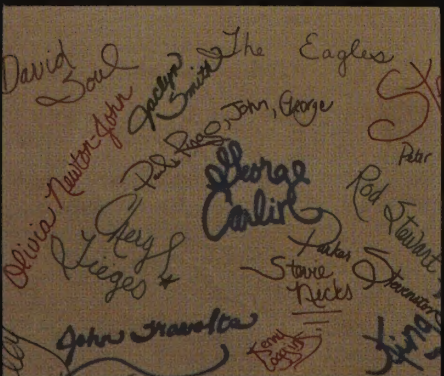 David
Soul
Jaclyn
Smith
The Eagles
Olivia Newton-John
Paul, Ringo, John, George
George
Carlin
Peter
Rod Stewart
Cheryl
Tieges
Parker Stevenson
Stevie
Nicks
John Travolta
King